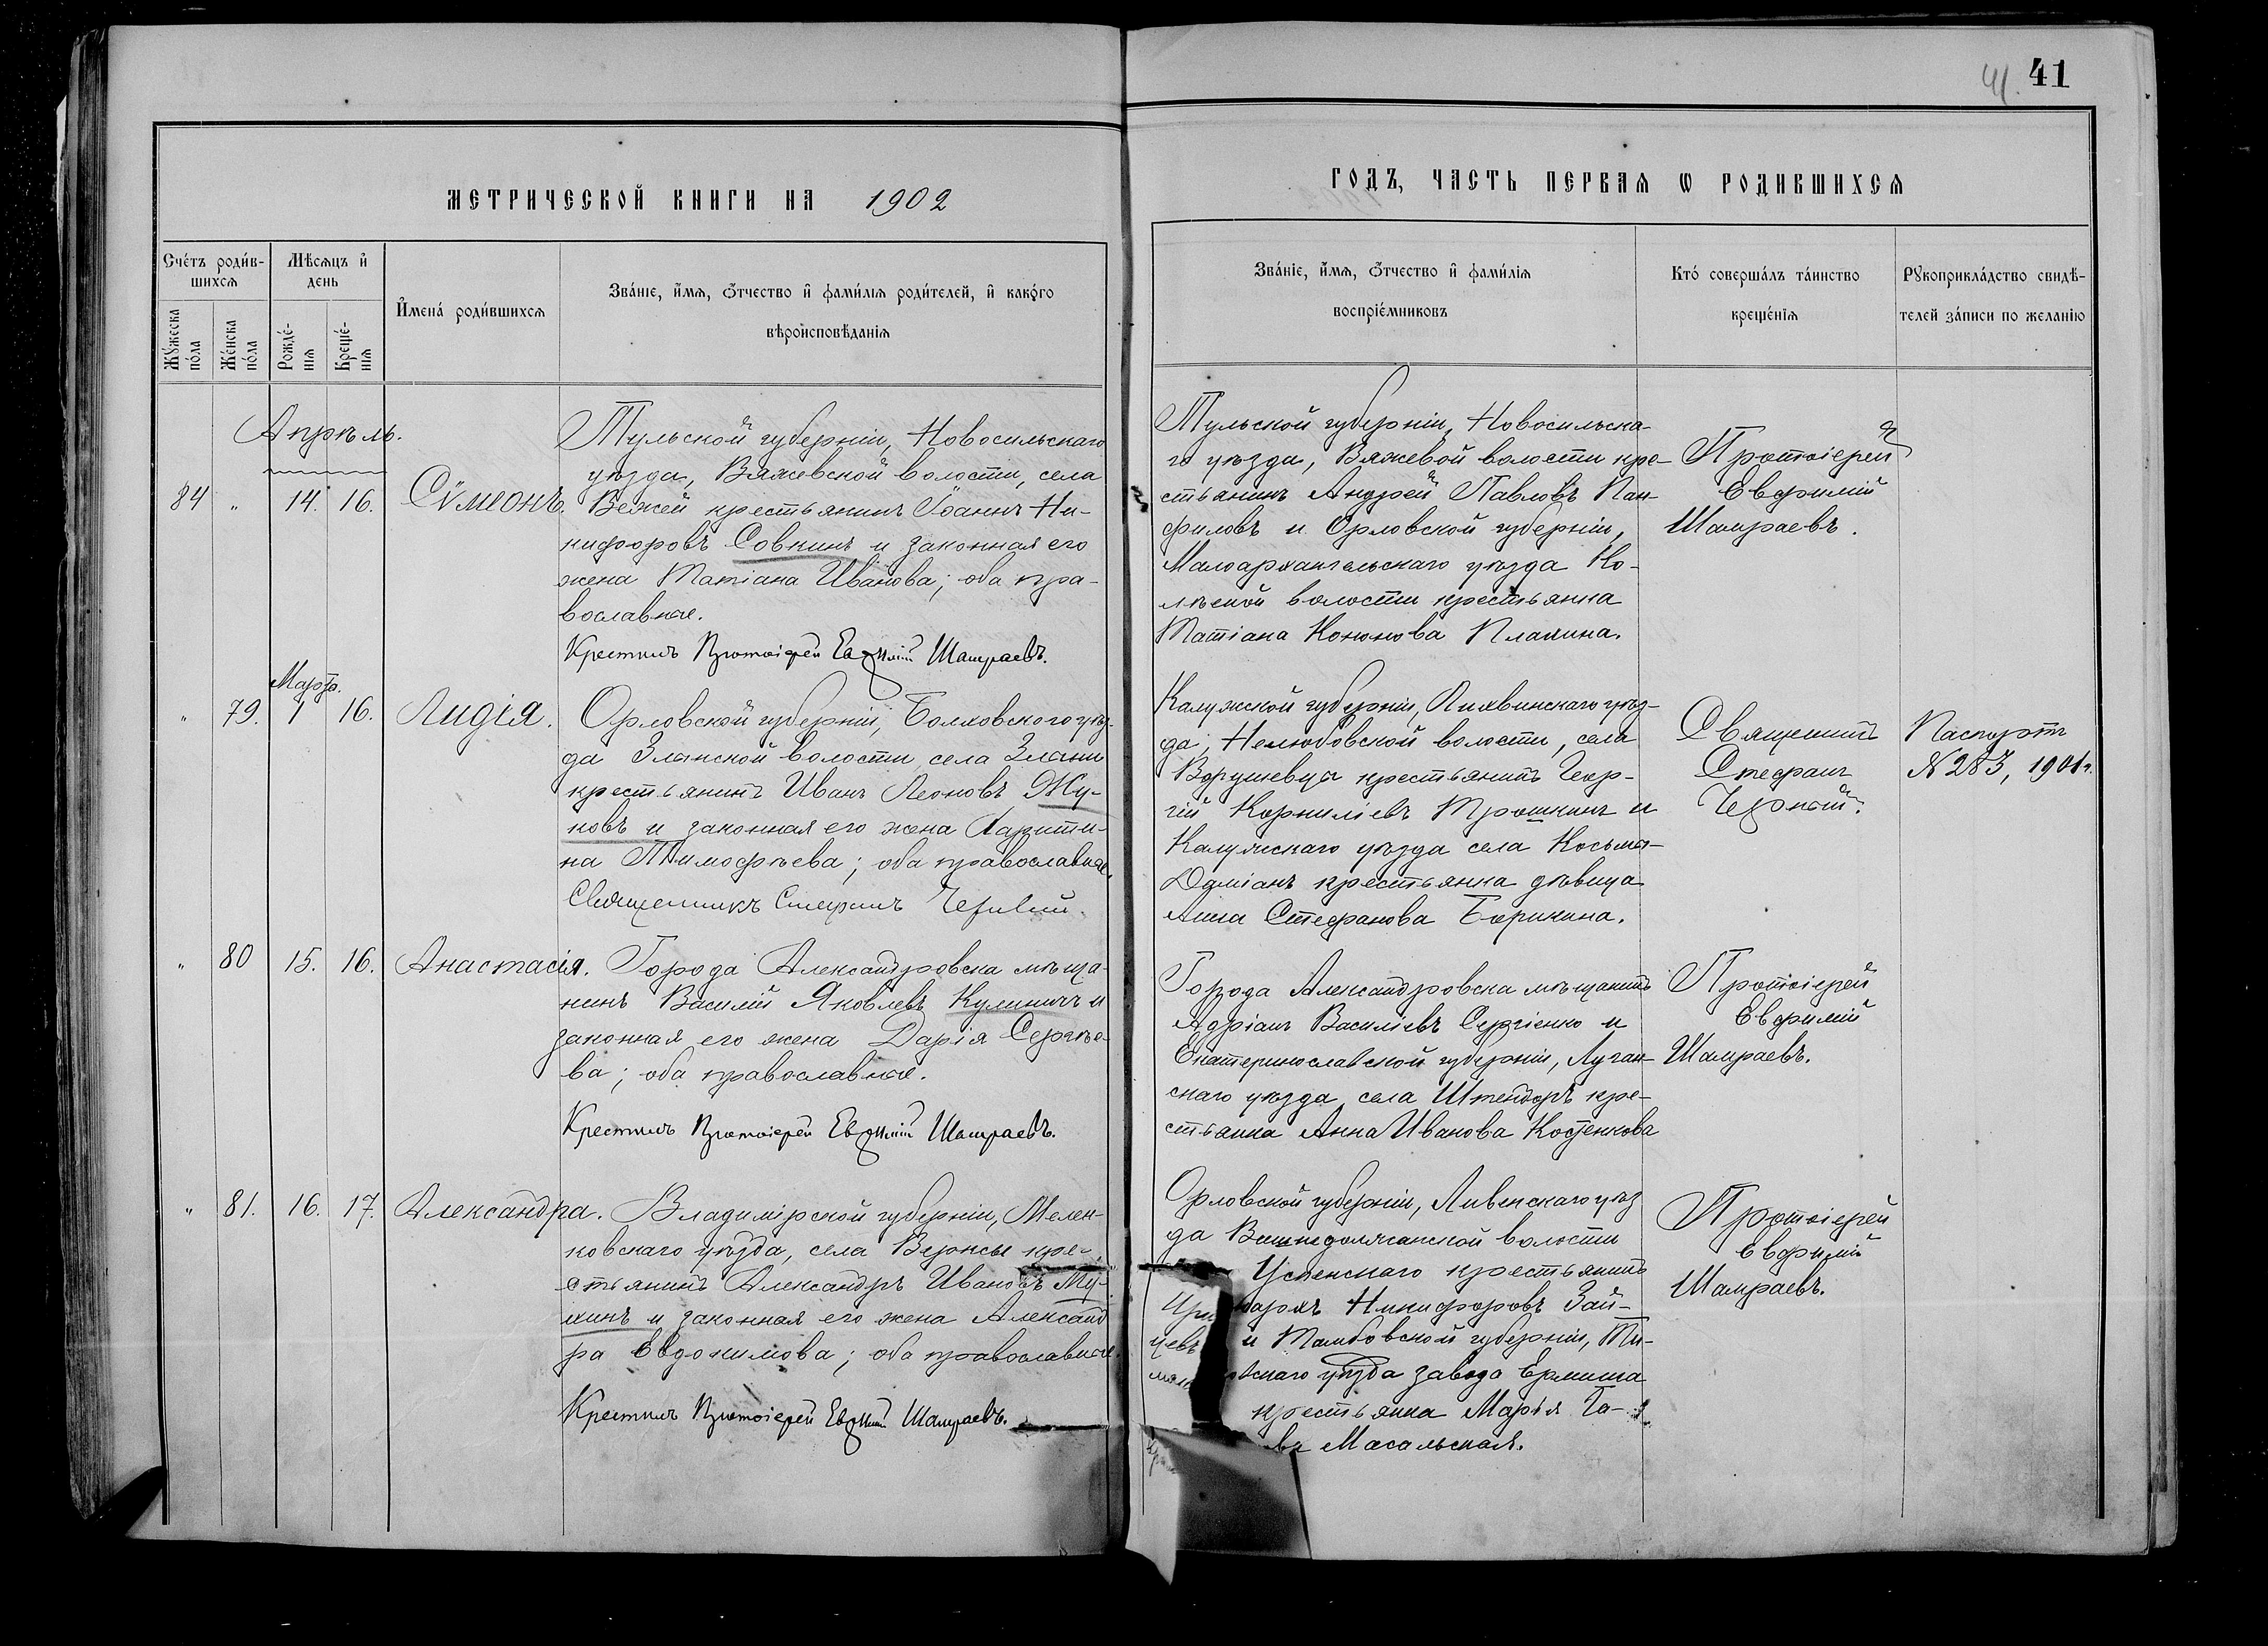 41. 41
МЕТРИЧЕСКОЙ КНИГИ НА 1902
ГОДЪ, ЧАСТЬ ПЕРВАЯ Ѡ РОДИВШИХСЯ
Сче́тъ роди́в-
шихсѧ
Мѣ́сѧцъ и҆
день
Мꙋ́жеска
по́ла
Же́нска
по́ла
Рожде́-
нїѧ
Креще́-
нїѧ
И҆мена́ роди́вшихсѧ
Зва́нїе, и҆́мѧ, ѻ҆́тчество и҆ фами́лїѧ роди́телей, и҆ како́гѡ
вѣроисповѣ́данїѧ
Зва́нїе, и҆́мѧ, ѻ҆́тчество и҆ фами́лїѧ
воспрїе́мниковъ
Кто́ соверша́лъ та́инство
креще́нїѧ
Рꙋкоприкла́дство свидѣ́-
телей за́писи по жела́нїю
Апрѣль.
84 " 14. 16. Сѵмеонъ.
Тульской губерніи, Новосильскаго
уѣзда, Вяжевской волости, села
Вежей крестьянинъ Іоаннъ Ни-
кифоровъ Совкинъ и законная его
жена Татіана Иванова; оба пра-
вославные.
Крестилъ Протоіерей Евфимій Шамраевъ.
Тульской губерніи, Новосильска-
го уѣзда, Вяжевой волости кре-
стьянинъ Андрей Павловъ Пан-
филовъ и Орловской губерніи,
Малоархангельскаго уѣзда Ко-
лѣской волости крестьянка
Татіана Кононова Плахина.
Протоіерей
Евфимій
Шамраевъ.
Марта.
" 79. 1 16. Лидія.
Орловской губерніи, Болховского уѣз-
да Злынской волости села Злыни
крестьянинъ Иванъ Леоновъ Жу-
ковъ и законная его жена Харити-
на Тимофѣева; оба православные.
Священникъ Стефанъ Черный.
Калужской губерніи, Лихвинскаго уѣз-
да, Нелюбовской волости, села
крестьянинъ Геор-
гій Корниліевъ Трошкинъ и
Калужскаго уѣзда села Косьма-
Даміанъ крестьянка дѣвица
Анна Стефанова Борикина.
Священникъ
Стефанъ
Черный.
Паспортъ
№ 283, 1901 г.
" 80 15. 16. Анастасія.
Города Александровска мѣща-
нинъ Василій Яковлевъ Кулиничъ и
законная его жена Дарія Сергѣе-
ва; оба православные.
Крестилъ Протоіерей Евфимій Шамраевъ.
Города Александровска мѣщанинъ
Адріанъ Василіевъ Сергіенко и
Екатеринославской губерніи, Луган-
скаго уѣзда села Штендоръ кре-
стьянка Анна Иванова Костенкова
Протоіерей
Евфимій
Шамраевъ.
" 81. 16. 17. Александра.
Владимірской губерніи, Мелен-
ковскаго уѣзда, села Верхсы кре-
стьянинъ Александръ Ивановъ Му-
хинъ и законная его жена Александ
ра Евдокимова; оба православные.
Крестилъ Протоіерей Евфимій Шамраевъ.
Орловской губерніи, Ливенскаго уѣз
да волости
Успенскаго крестьянинъ
Никифоровъ Зай-
цевъ и Тамбовской губерніи, Те-
скаго уѣзда завода Ермиша
крестьянка Марія Га-
Масальская.
Протоіерей
Евфимій
Шамраевъ.